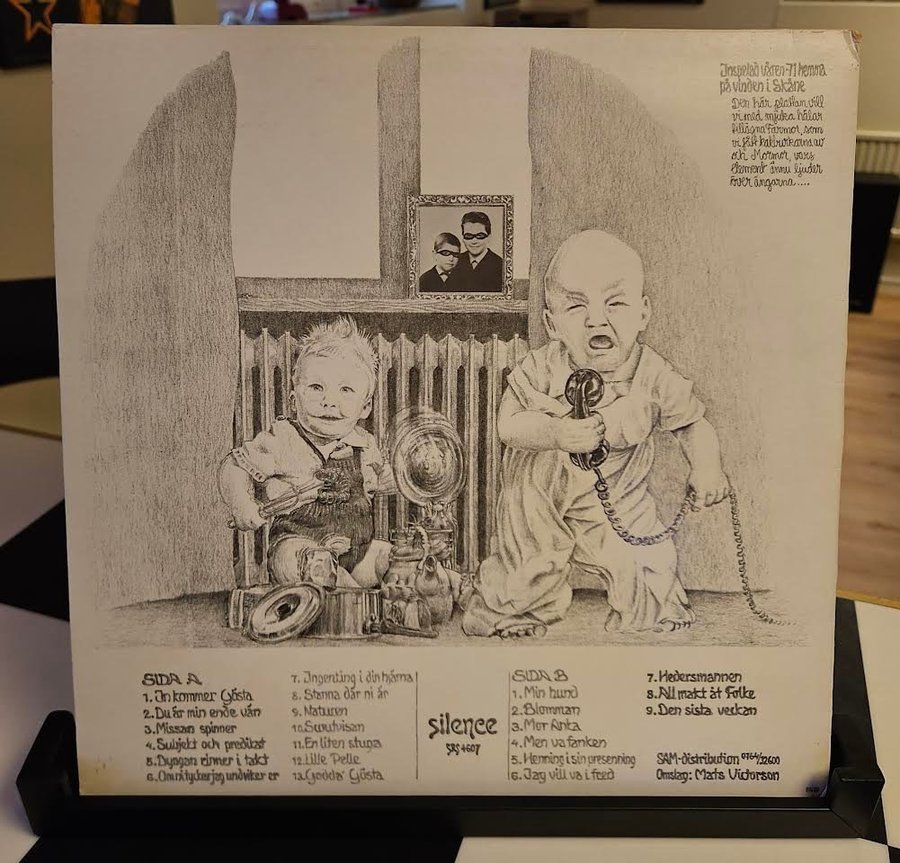 Inspelad våren-71 hemma
på vinden i Skåne
Den här plattan vill
vi med mjuka hälar
tillägna Farmor, som
vi fått kalburkarna av
och Mormor, vars
element ännu ljuder
över ängarna....
SIDA A
1. In kommer Gösta
2. Du är min ende vän
3. Missan spinner
4. Subjekt och predikat
5. Dyngan rinner i takt
6. Om ni tycker jag undviker er
7. Ingenting i din hjärna
8. Stanna där ni är
9. Naturen
10. Survisan
11. En liten stuga
12. Lille Pelle
13. Goddag Gösta
silence
SRS 4607
SIDA B
1. Min hund
2. Blomman
3. Mor Anka
4. Men va fanken
5. Henning i sin presenning
6. Jag vill va i fred
7. Hedersmannen
8. All makt åt Folke
9. Den sista veckan
SAM-distribution 0764/52600
Omslag: Mats Victorson